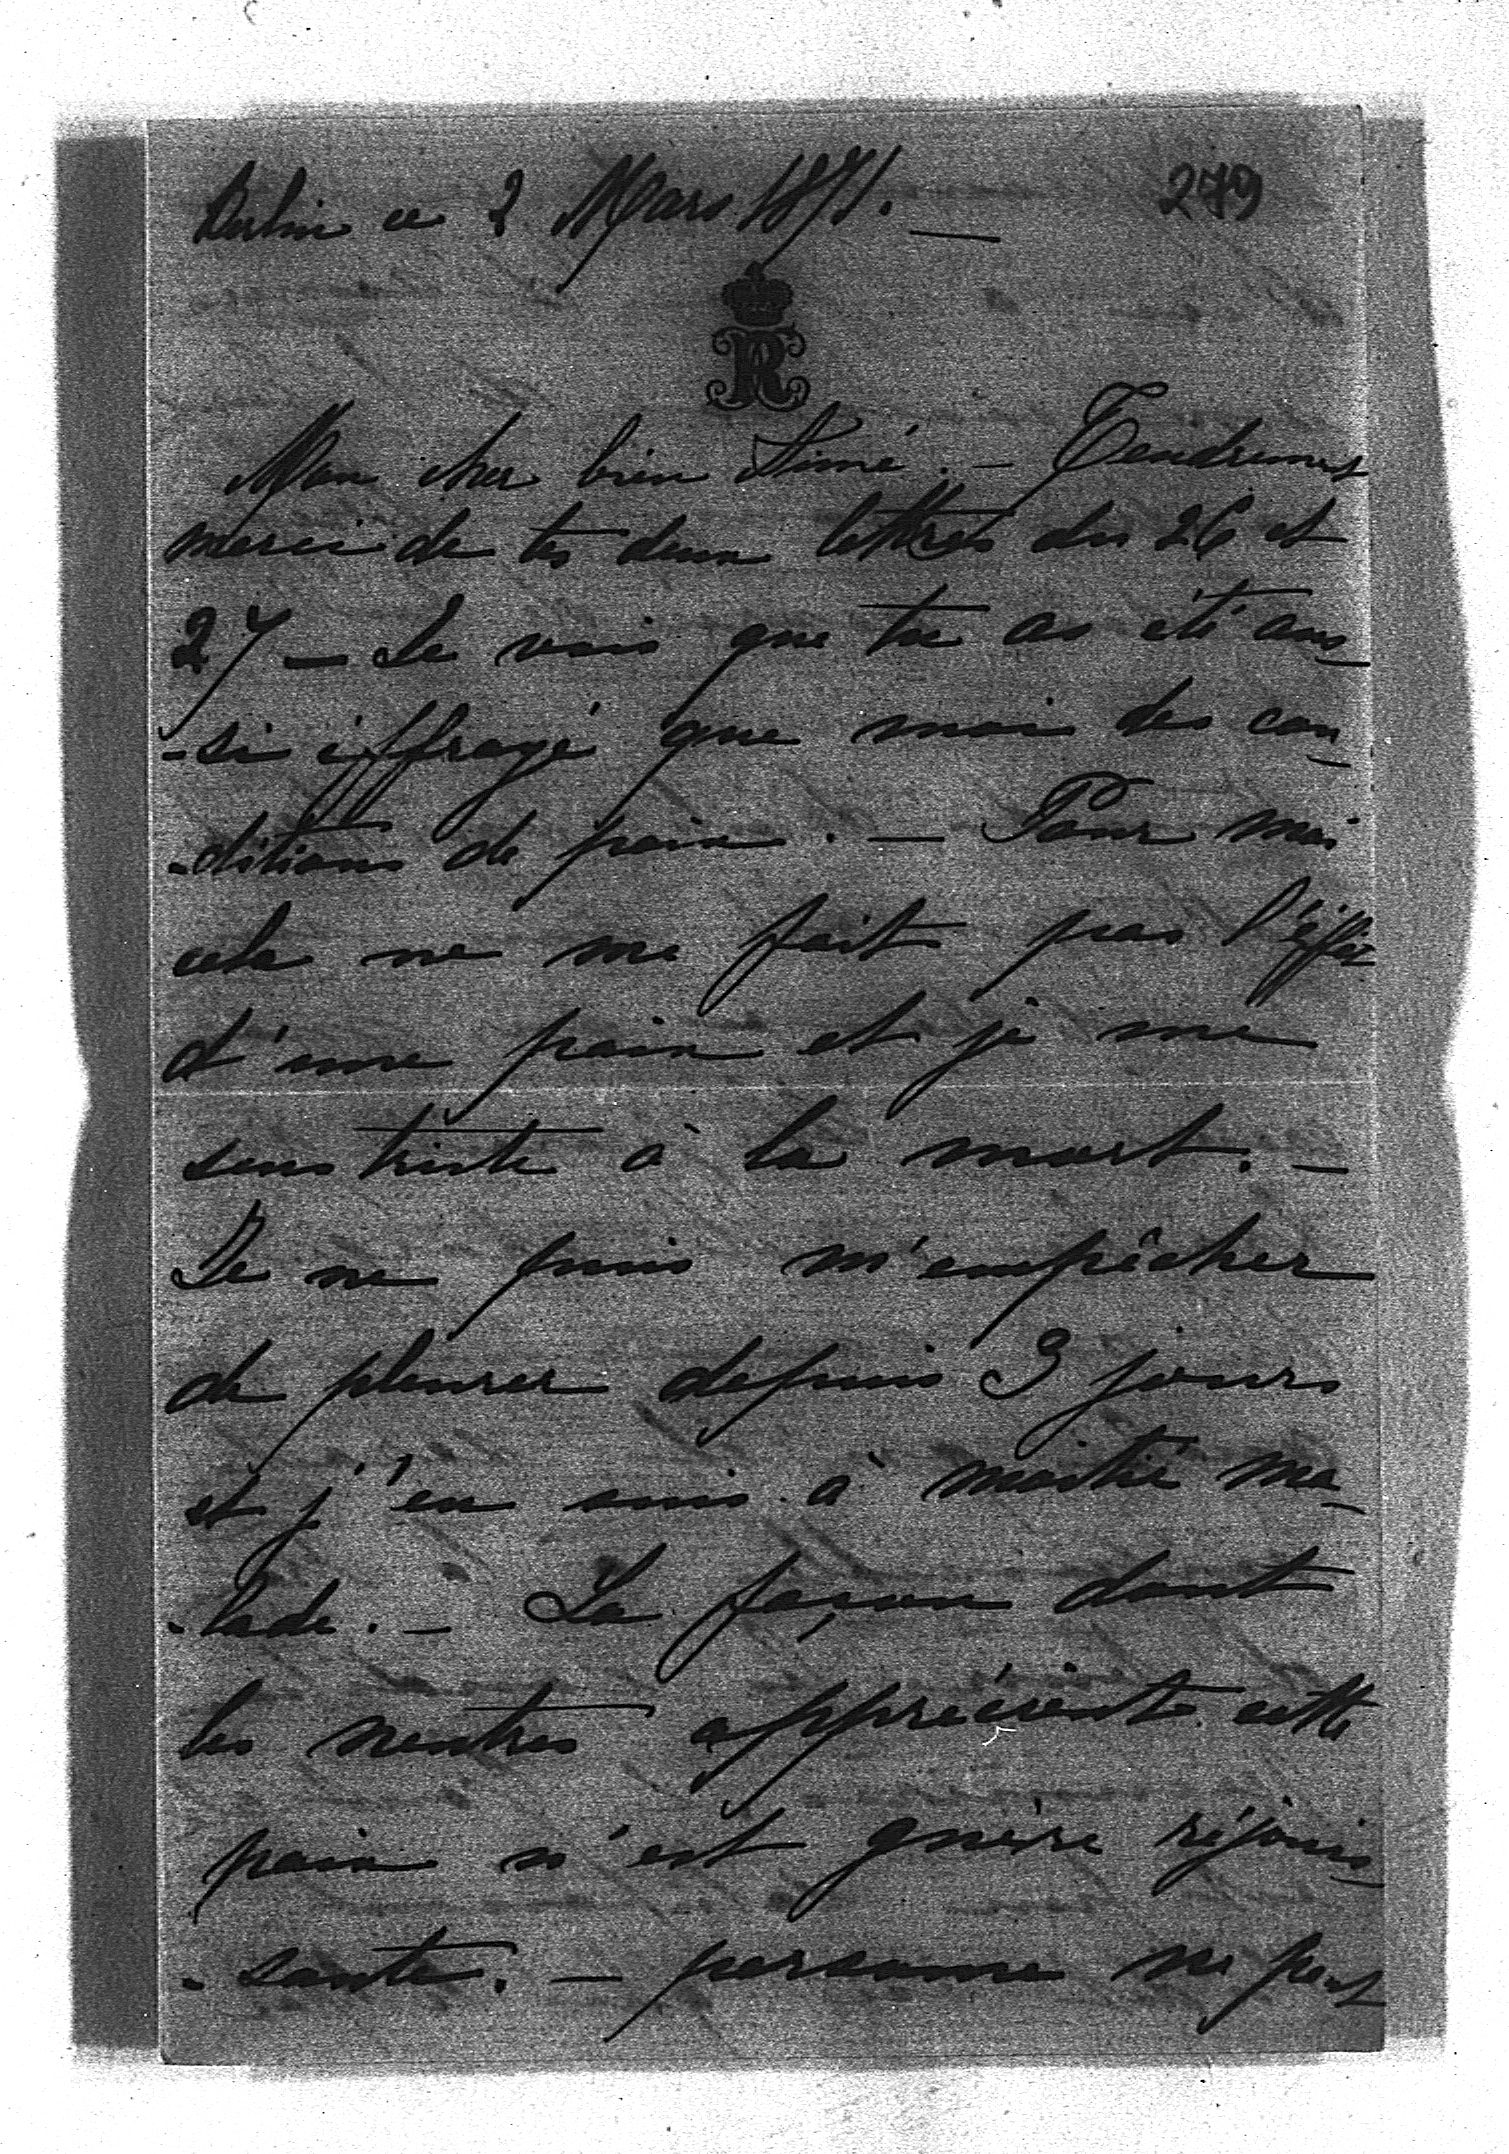 Berlin ce 2 Mars 1871. —
279
R
Mon cher bien Aimé. — Tendrement
merci de tes deux lettres du 26 et
27 — Je vois que tu as été aus-
-si éffrayé que moi des con-
-ditions de paix. — Pour moi
cela ne me fait pas l'éffet
d'une paix et je me
sens triste à la mort. —
Je ne puis m'empêcher
de pleurer depuis 3 jours
et j'en suis à moitié ma-
-lade. — La façon dont
les neutres apprécient cette
paix n'est guère réjouis-
-sante. — personne ne peut